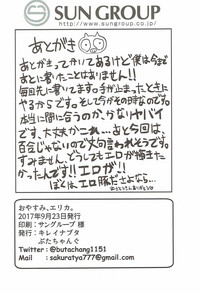 SUN GROUP
http://www.sungroup.co.jp/
あとがき
あとがきって かいてあるけど僕は今まで
あとに書いたことはありません!!
毎回先に書いてます。手が止まったときに
やるからです。そして今がその時なのです。
本当に間に合うのか、かなりヤバイ
です、大丈夫かこれ…あと今回は、
百合じゃないので文句言われそうです。
すみません、どうしてもエロが描きた
かったんです!!エロが!!
ぼくは、エロ豚ださよなら…
おやすみ、エリカ。
2017年9月23日発行
印刷:サングループ 様
発行:キレイナブタ
ぶたちゃんぐ
Twitter:@butachang1151
Mail : sakuratya777@gmail.com